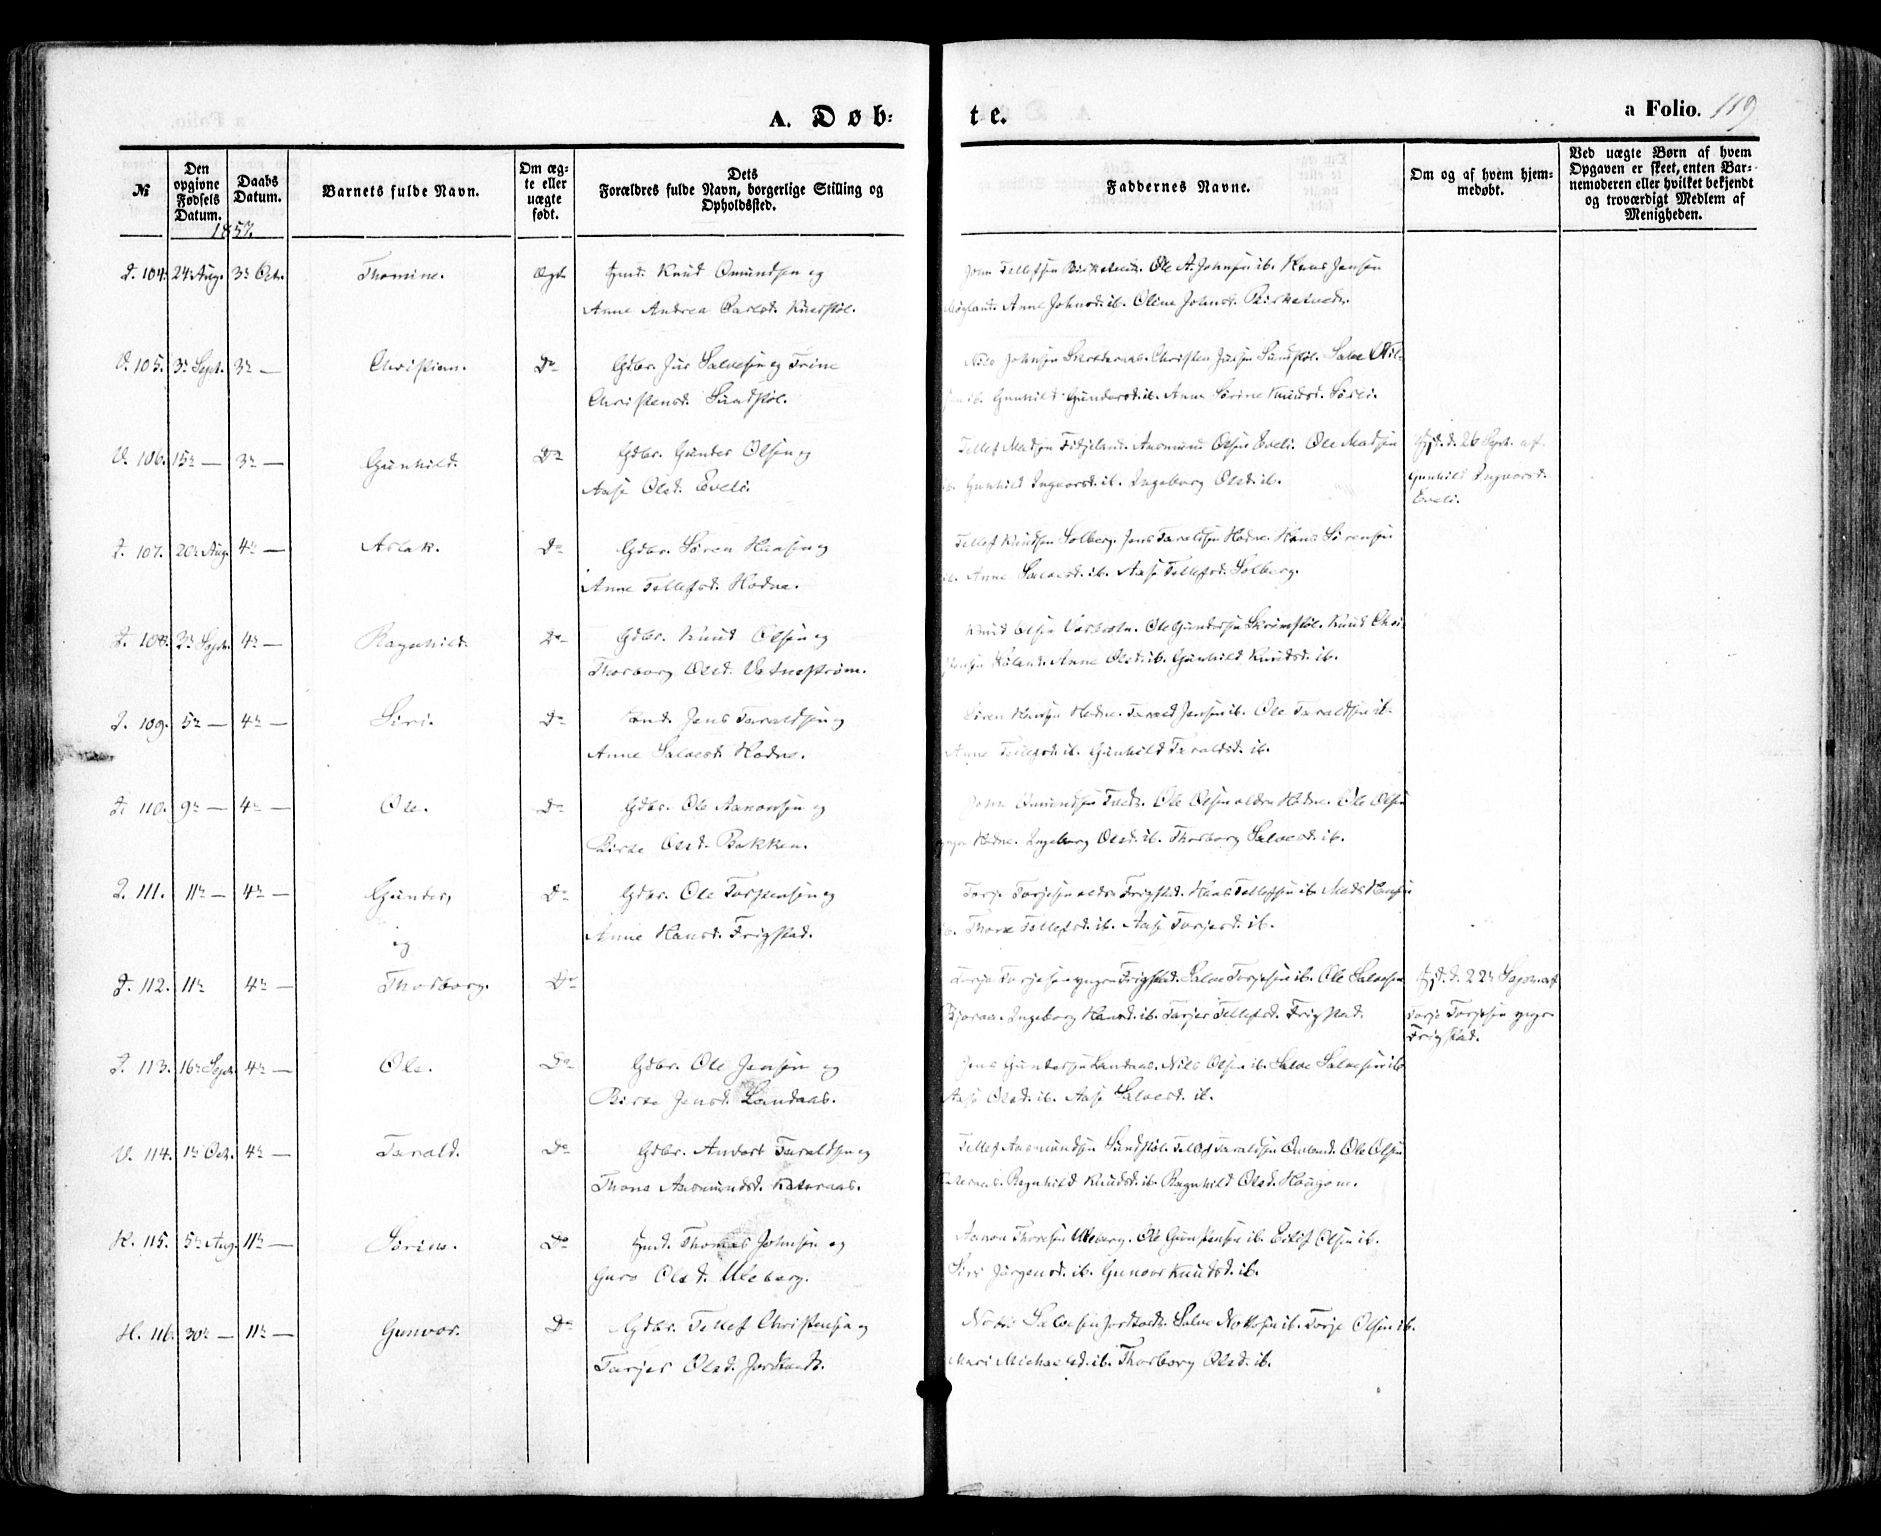 A. Døb-
te.
a Folio. 119
№
Den opgivne Fødsels Datum.
Daabs Datum.
Barnets fulde Navn.
Om ægte eller uægte født.
Dets Forældres fulde Navn, borgerlige Stilling og Opholdssted.
Faddernes Navne.
Om og af hvem hjemmedøbt.
Ved uægte Børn af hvem Opgaven er skeet, enten Barnemoderen eller hvilket bekjendt og troværdigt Medlem af Menigheden.
1857.
104. 24 Aug. 3 Oct. Thomine. Ægt. Knud Omundsen og
Anne Andrea
John Tellefsen Birketvedt. Ole A. Johnsen ib. Hans Jensen
Anne Johnsd. ib. Oline Johnsd. Birketvedt.
V. 105. 3 Sept. 3 — Christian. Do Gdbr. Salvesen og Trine
Christensd. Sundstøl.
Nils Johnsen Christen Sundstøl. Salve
ib. Gunhild Gundersd. ib. Anne Sørine Knudsd.
V. 106. 15 — 3 — Gunhild. Do Gdbr. Gunder Olsen og
Aase Olsd. Eveli.
Tellef Madsen Fidjeland. Aasmund Olsen Eveli. Ole Madsen
Gunhild Ingvorsd. ib. Ingeborg Olsd. ib.
Hjd. d. 26 Sept. af
Gunhild Ingvorsd.
Eveli.
107. 20 Aug. 4 — Aslak. Do Gdbr. Søren Hansen og
Anne Tellefsd. Hodne.
Tellef Knudsen Solberg. Jens Taraldsen Hodne. Hans Sørensen
ib. Anne Salvesd. ib. Aase Tellefsd. Solberg.
108. 2 Sept. 4 — Ragnhild. Do Gdbr. Knud Olsen og
Thorborg Olsd. Vatnestrøm.
Knud Olsen Ole Gundersen Knud
Anne Olsd. ib. Gunhild Knudsd. ib.
109. 5 — 4 — Siri. Do Jens Taraldsen og
Anne Salvesd. Hodne.
Søren Hansen Hodne. Tarald Jensen ib. Ole Taraldsen ib.
Anne Tellefsd. ib. Gunhild Taraldsd. ib.
110. 9 — 4 — Ole. Do Gdbr. Ole Aanonsen og
Birte Olsd. Bakken.
Omundsen Ole Olsen ældre Hodne. Ole Olsen
yngre Hodne. Ingeborg Olsd. ib. Thorborg Salvesd. ib.
111. 11 — 4 — Gunder, Do Gdbr. Ole Torstensen og
og Anne Hansd. Frigstad.
Torje Torjesen ældre Frigstad. Hans Tellefsen ib. Mads Hansen
ib. Thore Tellefsd. ib. Aase Torjesd. ib.
112. 11 4 — Thorborg. Do
Torje Torjesen yngre Frigstad. Salve Torjesen ib. Ole Salvesen
Ingeborg Hansd. ib. Tarjer Tellefsd. Frigstad.
Hjd. d. 22 Sept. af
Torje Torjesen yngre
Frigstad.
113. 16 Sept. 4 — Ole. Do Gdbr. Ole Jensen og
Birte Jensd. Landaas.
Jens Gundersen Landaas. Nils Olsen ib. Salve Salvesen ib.
Aase Olsd. ib. Aase Salvesd. ib.
V. 114. 1 Oct. 4 — Tarald. Do Gdbr. Anders Taraldsen og
Thone Aasmundsd. Kateraas.
Tellef Aasmundsen Sundstøl. Tellef Taraldsen Ole Olsen
Kateraas. Ragnhild Knudsd. ib. Ragnhild Olsd.
H. 115. 5 Aug. 11 — Sørine. Do Thomas Johnsen og
Guro Olsd. Uleberg.
Aanon Thoresen Uleberg. Ole ib. Eilef Olsen ib.
Siri Jørgensd. ib. Gunvor Knudsd. ib.
H. 116. 30 — 11 — Gunvor. Do Gdbr. Tellef Christensen og
Tarjer Olsd.
Salvesen Salve ib. Torje Olsen ib.
Mari Michaelsd. ib. Thorborg Olsd. ib.